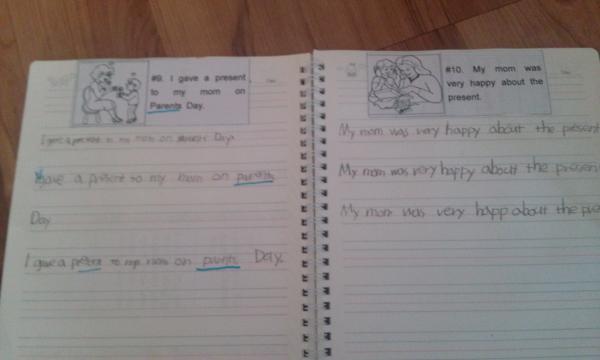 #9. I gave a present
to my mom on
Parents Day.
I gave a present to my mom on Day.
I gave a present to my mom on parents
Day
I gave a to my mom on parents Day.
#10. My mom was
very happy about the
present.
My mom was very happy about the present
My mom was very happy about the presen
My mom was very happ about the pre